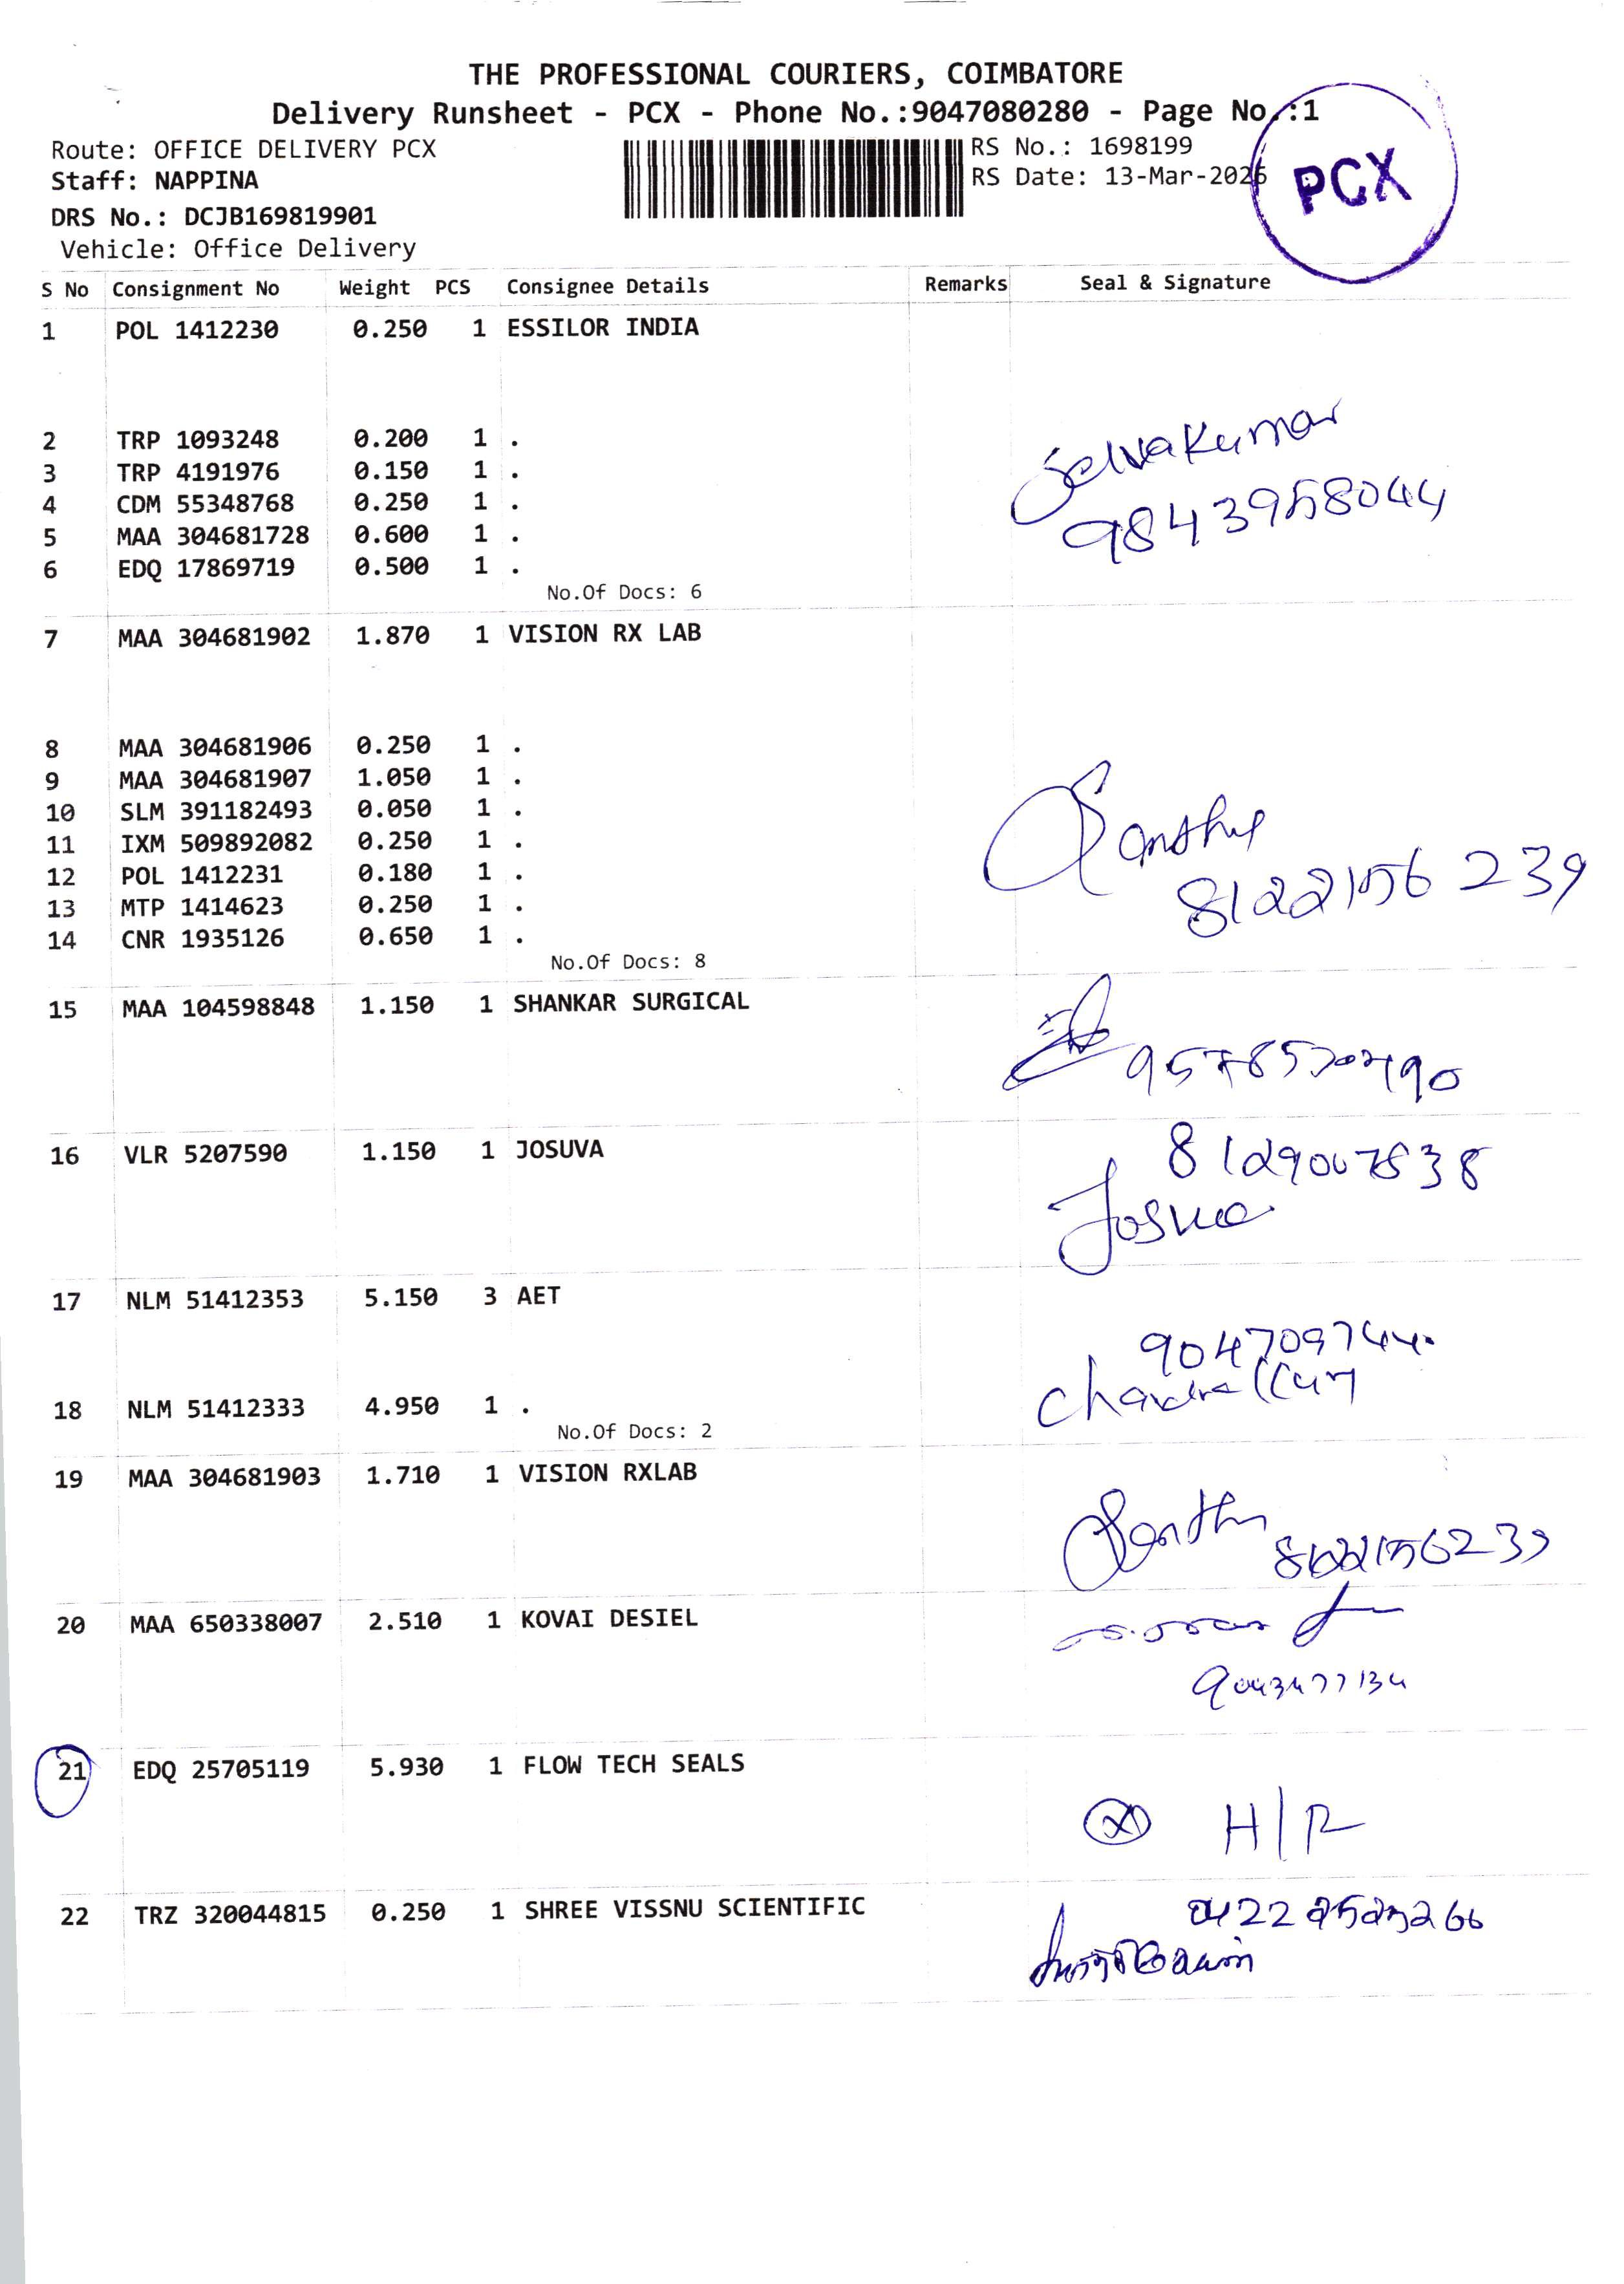 THE PROFESSIONAL COURIERS, COIMBATORE
Delivery Runsheet - PCX - Phone No.:9047080280 - Page No.:1
Route: OFFICE DELIVERY PCX
RS No.: 1698199
Staff: NAPPINA
RS Date: 13-Mar-2026
PCX
DRS No.: DCJB169819901
Vehicle: Office Delivery
S No Consignment No Weight PCS Consignee Details Remarks Seal & Signature
1 POL 1412230 0.250 1 ESSILOR INDIA
2 TRP 1093248 0.200 1 .
Selvakumar
3 TRP 4191976 0.150 1 .
4 CDM 55348768 0.250 1 .
9843958044
5 MAA 304681728 0.600 1 .
6 EDQ 17869719 0.500 1 .
No.Of Docs: 6
7 MAA 304681902 1.870 1 VISION RX LAB
8 MAA 304681906 0.250 1 .
9 MAA 304681907 1.050 1 .
10 SLM 391182493 0.050 1 .
11 IXM 509892082 0.250 1 .
12 POL 1412231 0.180 1 .
8122156239
13 MTP 1414623 0.250 1 .
14 CNR 1935126 0.650 1 .
No.Of Docs: 8
15 MAA 104598848 1.150 1 SHANKAR SURGICAL
16 VLR 5207590 1.150 1 JOSUVA
Joshua
17 NLM 51412353 5.150 3 AET
9047709744
18 NLM 51412333 4.950 1 .
No.Of Docs: 2
19 MAA 304681903 1.710 1 VISION RXLAB
8122156239
20 MAA 650338007 2.510 1 KOVAI DESIEL
21 EDQ 25705119 5.930 1 FLOW TECH SEALS
H/R
22 TRZ 320044815 0.250 1 SHREE VISSNU SCIENTIFIC